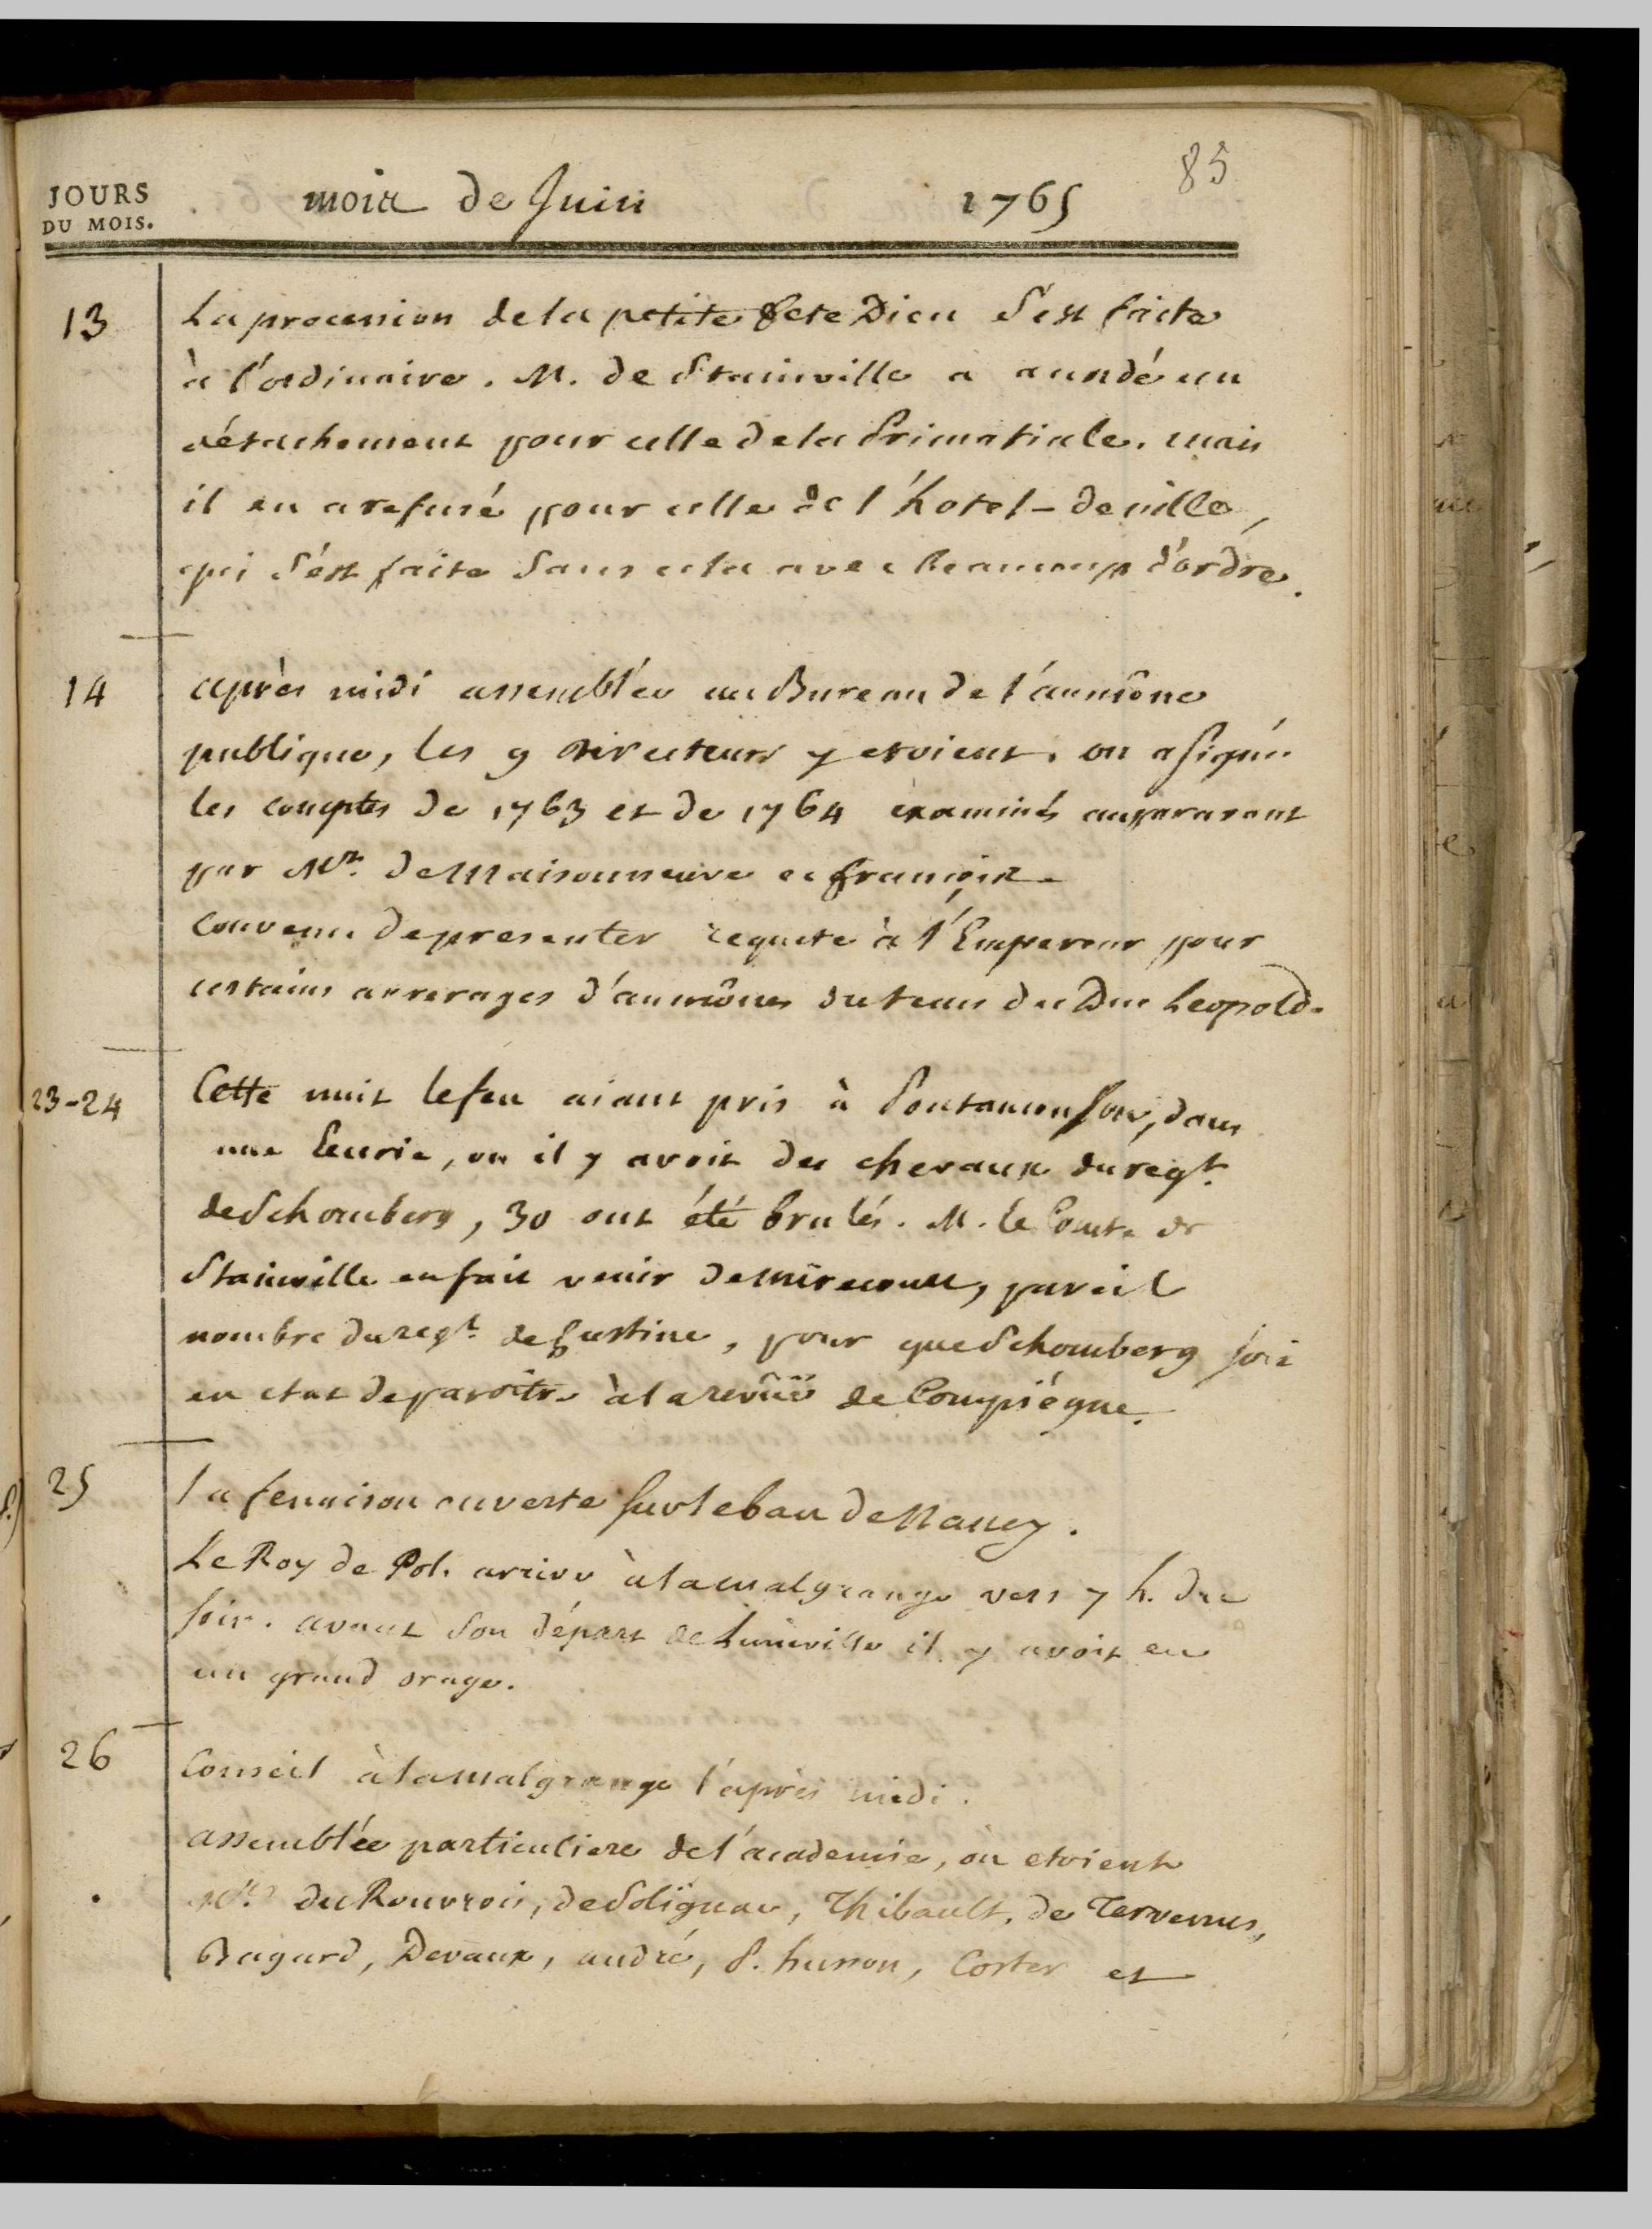 85
JOURS
DU MOIS.
mois de Juin 1765
13 La procession de la petite fete Dieu s'est faite
à l'ordinaire. M. de Stainville a accordé un
détachement pour celle de la Primatiale. mais
il en a refusé pour celle de l'hotel-de ville,
qui s'est faite sans cela avec beaucoup d'ordre.
14 après midi assemblée au Bureau de l'aumône
publique, les 9 directeurs y etoient. on a signé
les comptes de 1763 et de 1764 examinés auparavant
par Mrs. de Maisonneuve et françois.
convenu de presenter requete à l'Empereur pour
certains arrerages d'aumônes du tems du Duc Leopold.
23-24 Cette nuit le feu aiant pris à Pontamousson, dans
une Ecurie, ou il y avoit des chevaux du regt.
de Schomberg, 30 ont été brulés. M. le Comte de
Stainville en fait venir de mirecourt, pareil
nombre du regt. de Custine, pour que Schomberg soit
en etat de paroitre à la revüe de Compiégne.
25 la fenaison ouverte sur le ban de Nancy.
Le Roy de Pol. arrive à la malgrange vers 7 h. du
soir. avant son départ de Luneville il y avoit eu
un grand orage.
26 Conseil à la malgrange l'après midi.
assemblée particuliere de l'academie, où etoient
Mrs. du Rouvrois, de Solignac, Thibault, de Tervenus,
Bagard, Devaux, andré, P. husson, Coster et